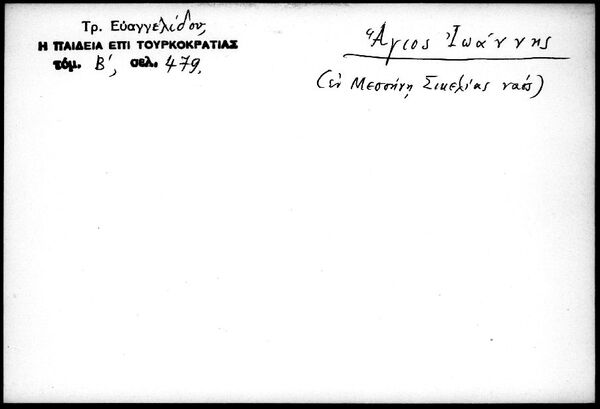 Τρ. Εὐαγγελίδου,
Η ΠΑΙΔΕΙΑ ΕΠΙ ΤΟΥΡΚΟΚΡΑΤΙΑΣ
τόμ. Β', σελ. 479.
Ἅγιος Ἰωάννης
(ἐν Μεσσήνῃ Σικελίας ναός)